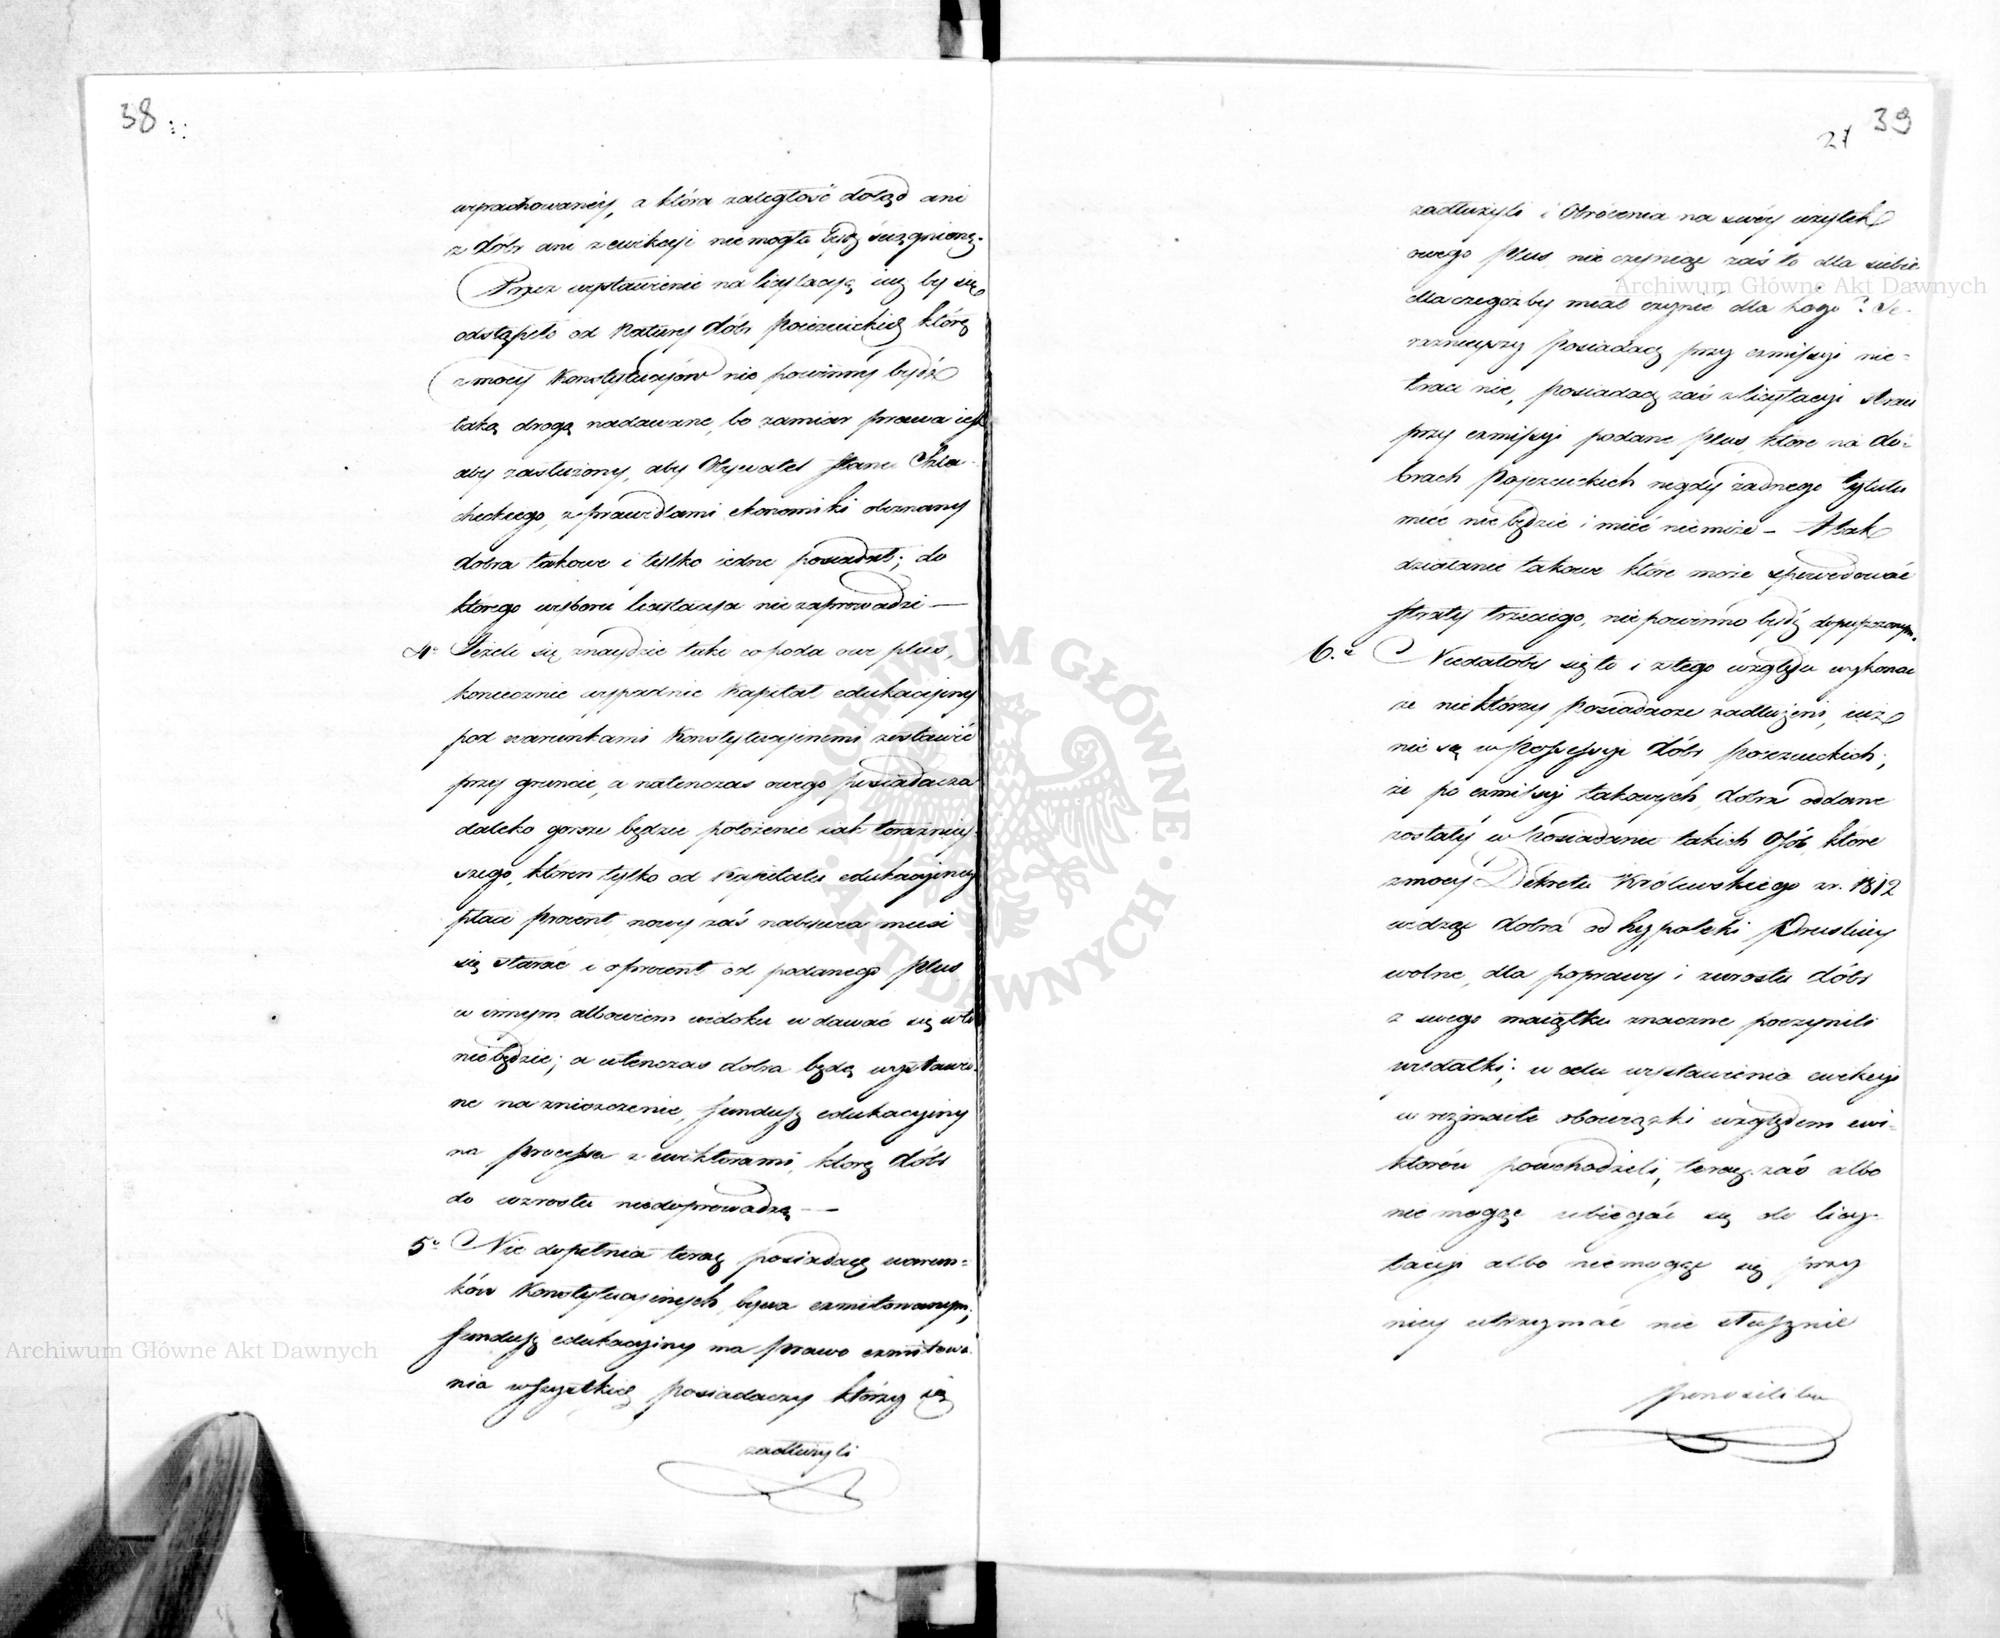 38
wyrachowaney, a która zaległość dotąd ani
z dóbr ani z ewikcyi nie mogła bydź ściągnioną.
Przez wystawienie na licytacyą iuż by się
odstąpiło od natury dóbr Poiezuickich które
z mocy Konstytucyiów nie powinny bydź
taką drogą nadawane, bo zamiar prawa iest
aby zasłużony, aby Obywatel stanu Szla-
checkiego, z prawidłami ekonomiki obeznany
dobra takowe i tylko iedne posiadał; do
którego wyboru licytacya nie zaprowadzi —
4o Jeżeli się znaydzie taki co poda owe plus,
koniecznie wypadnie Kapitał edukacyiny
pod warunkami Konstytucyinemi zostawić
przy gruncie, a natenczas owego posiadacza
daleko gorsze będzie położenie iak teraźniey-
szego, któren tylko od Kapitału edukacyinego
płaci procent, nowy zaś nabywca musi
się starać i o procent od podanego plus
w innym albowiem widoku wdawać się w to
nie będzie; a wtenczas dobra będą wystawio-
ne na zniszczenie, fundusz edukacyiny
na processa z ewiktorami, które dóbr
do wzrostu niedoprowadzą —
5o Nie dopełnia teraz posiadacz warun-
ków Konstytucyinych, bywa exmitowanym;
fundusz edukacyiny ma prawo exmitowa-
nia wszystkich posiadaczy którzy się
zadłużyli
39
21
zadłużyli i Obrócenia na swóy użytek
owego plus, nie czyniąc zaś to dla siebie
dla czegożby miał czynić dla kogo? Te-
raznieyszy posiadacz przy exmissyi nie-
traci nic, posiadacz zaś z licytacyi straci
przy exmissyi podane plus, które na do-
brach Pojezuickich nigdy żadnego tytułu
mieć nie będzie i mieć nie może — A tak
działanie takowe które może spowodować
straty trzeciego, nie powinno bydź dopuszczonym.
6.o Niedałoby się to i z tego względu wykonać
że niektórzy Posiadacze zadłużeni, iuż
nie są w Possessyi dóbr poiezuickich,
że po exmissyi takowych, dobra oddane
zostały w Posiadanie takich Osób, które
z mocy Dekretu Królewskiego z r. 1812
widząc dobra od hypoteki Pruskiey
wolne, dla poprawy i wzrostu dóbr
z swego maiątku znaczne poczynili
wydatki; w celu wystawienia ewikcyi
w rozmaite obowiązki względem ewi-
ktorów powchodzili, teraz zaś albo
nie mogąc ubiegać się do licy-
tacyi albo niemogąc się przy
niey utrzymać nie słusznie
ponosiliby
Archiwum Główne Akt Dawnych
Archiwum Główne Akt Dawnych
ARCHIWUM GŁÓWNE · AKT DAWNYCH ·